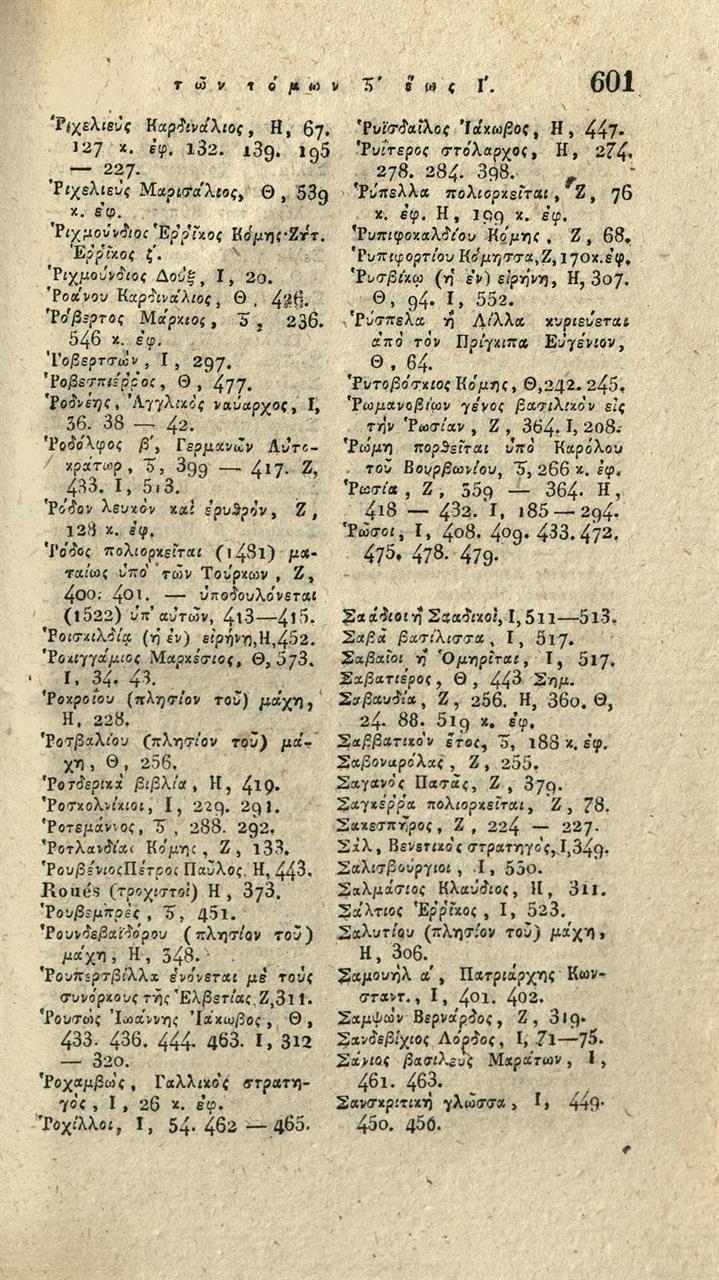 τῶν τόμων Ϛ' ἕως Ι'. 601
Ῥιχελιεὺς Καρδινάλιος, Η, 67.
127 κ. ἐφ. 132. 139. 195
— 227.
Ῥιχελιεὺς Μαρισάλιος, Θ, 539
κ. ἐφ.
Ῥιχμούνδιος Ἐῤῥῖκος Κόμης· Ζήτ.
Ἐῤῥῖκος ζ'.
Ῥιχμούνδιος Δοὺξ, Ι, 20.
Ῥοάνου Καρδινάλιος, Θ, 426.
Ῥόβερτος Μάρκιος, Ϛ, 236.
546 κ. ἐφ.
Ῥοβερτσὼν, Ι, 297.
Ῥοβεσπιέῤῥος, Θ, 477.
Ῥοδνέης, Ἀγγλικὸς ναύαρχος, Ι,
36. 38 — 42.
Ῥοδόλφος β', Γερμανῶν Αὐτο-
κράτωρ, Ϛ, 399 — 417. Ζ,
433. Ι, 513.
Ῥόδον λευκὸν καὶ ἐρυθρὸν, Ζ,
128 κ. ἐφ.
Ῥόδος πολιορκεῖται (1481) μα-
ταίως ὑπὸ τῶν Τούρκων, Ζ,
400. 401. — ὑποδουλόνεται
(1522) ὑπ' αὐτῶν, 413—415.
Ῥοισκιλδίᾳ (ἡ ἐν) εἰρήνη, Η, 452.
Ῥοκιγγάμιος Μαρκέσιος, Θ, 573.
Ι, 34. 43.
Ῥοκροΐου (πλησίον τοῦ) μάχη,
Η, 228.
Ῥοσβαλίου (πλησίον τοῦ) μά-
χη, Θ, 256.
Ῥοσδερικὰ βιβλία, Η, 419.
Ῥοσκολνίκιοι, Ι, 229. 291.
Ῥοτεμάννος, Ϛ, 288. 292.
Ῥοτλανδίας Κόμης, Ζ, 133.
Ῥουβένιος Πέτρος Παῦλος, Η, 443.
Roués (τροχιστοὶ) Η, 373.
Ῥουβεμπρὲς, Ϛ, 451.
Ῥουνδεβαϊδόρου (πλησίον τοῦ)
μάχη, Η, 348.
Ῥουπερσβίλλα ἑνόνεται μὲ τοὺς
συνόρκους τῆς Ἑλβετίας, Ζ, 311.
Ῥουσὼς Ἰωάννης Ἰάκωβος, Θ,
433. 436. 444. 463. Ι, 312
— 320.
Ῥοχαμβὼς, Γαλλικὸς στρατη-
γὸς, Ι, 26 κ. ἐφ.
Ῥοχίλλοι, Ι, 54. 462 — 465.
Ῥυϊσδαῖλος Ἰάκωβος, Η, 447.
Ῥυΐτερος στόλαρχος, Η, 274.
278. 284. 398.
Ῥύπελλα πολιορκεῖται, Ζ, 76
κ. ἐφ. Η, 199 κ. ἐφ.
Ῥυπιφοκαλδίου Κόμης, Ζ, 68.
Ῥυπιφορτίου Κόμησσα, Ζ, 170 κ. ἐφ.
Ῥυσβίκῳ (ἡ ἐν) εἰρήνη, Η, 307.
Θ, 94. Ι, 552.
Ῥύσπελα ἢ Λίλλα κυριεύεται
ἀπὸ τὸν Πρίγκιπα Εὐγένιον,
Θ, 64.
Ῥυτοβόσκιος Κόμης, Θ, 242. 245.
Ῥωμανοβίων γένος βασιλικὸν εἰς
τὴν Ῥωσίαν, Ζ, 364. Ι, 208.
Ῥώμη πορθεῖται ὑπὸ Καρόλου
τοῦ Βουρβωνίου, Ϛ, 266 κ. ἐφ.
Ῥωσία, Ζ, 359 — 364. Η,
418 — 432. Ι, 185 — 294.
Ῥῶσοι, Ι, 408. 409. 433. 472.
475. 478. 479.
Σαάδιοι ἢ Σααδικοὶ, Ι, 511—513.
Σαβὰ βασίλισσα, Ι, 517.
Σαβαῖοι ἢ Ὁμηρῖται, Ι, 517.
Σαβατιέρος, Θ, 443 Σημ.
Σαβαυδία, Ζ, 256. Η, 360. Θ,
24. 88. 519 κ. ἐφ.
Σαββατικὸν ἔτος, Ϛ, 188 κ. ἐφ.
Σαβοναρόλας, Ζ, 255.
Σαγανὸς Πασᾶς, Ζ, 379.
Σαγκέῤῥα πολιορκεῖται, Ζ, 78.
Σακεσπῆρος, Ζ, 224 — 227.
Σὰλ, Βενετικὸς στρατηγὸς, Ι, 349.
Σαλισβούργιοι, Ι, 550.
Σαλμάσιος Κλαύδιος, Η, 311.
Σάλτιος Ἐῤῥῖκος, Ι, 523.
Σαλυτίου (πλησίον τοῦ) μάχη,
Η, 306.
Σαμουὴλ α', Πατριάρχης Κων-
σταντ., Ι, 401. 402.
Σαμψὼν Βερνάρδος, Ζ, 319.
Σανδεβίχιος Λόρδος, Ι, 71—75.
Σάνιος βασιλεὺς Μαράτων, Ι,
461. 463.
Σανσκριτικὴ γλῶσσα, Ι, 449.
450. 456.